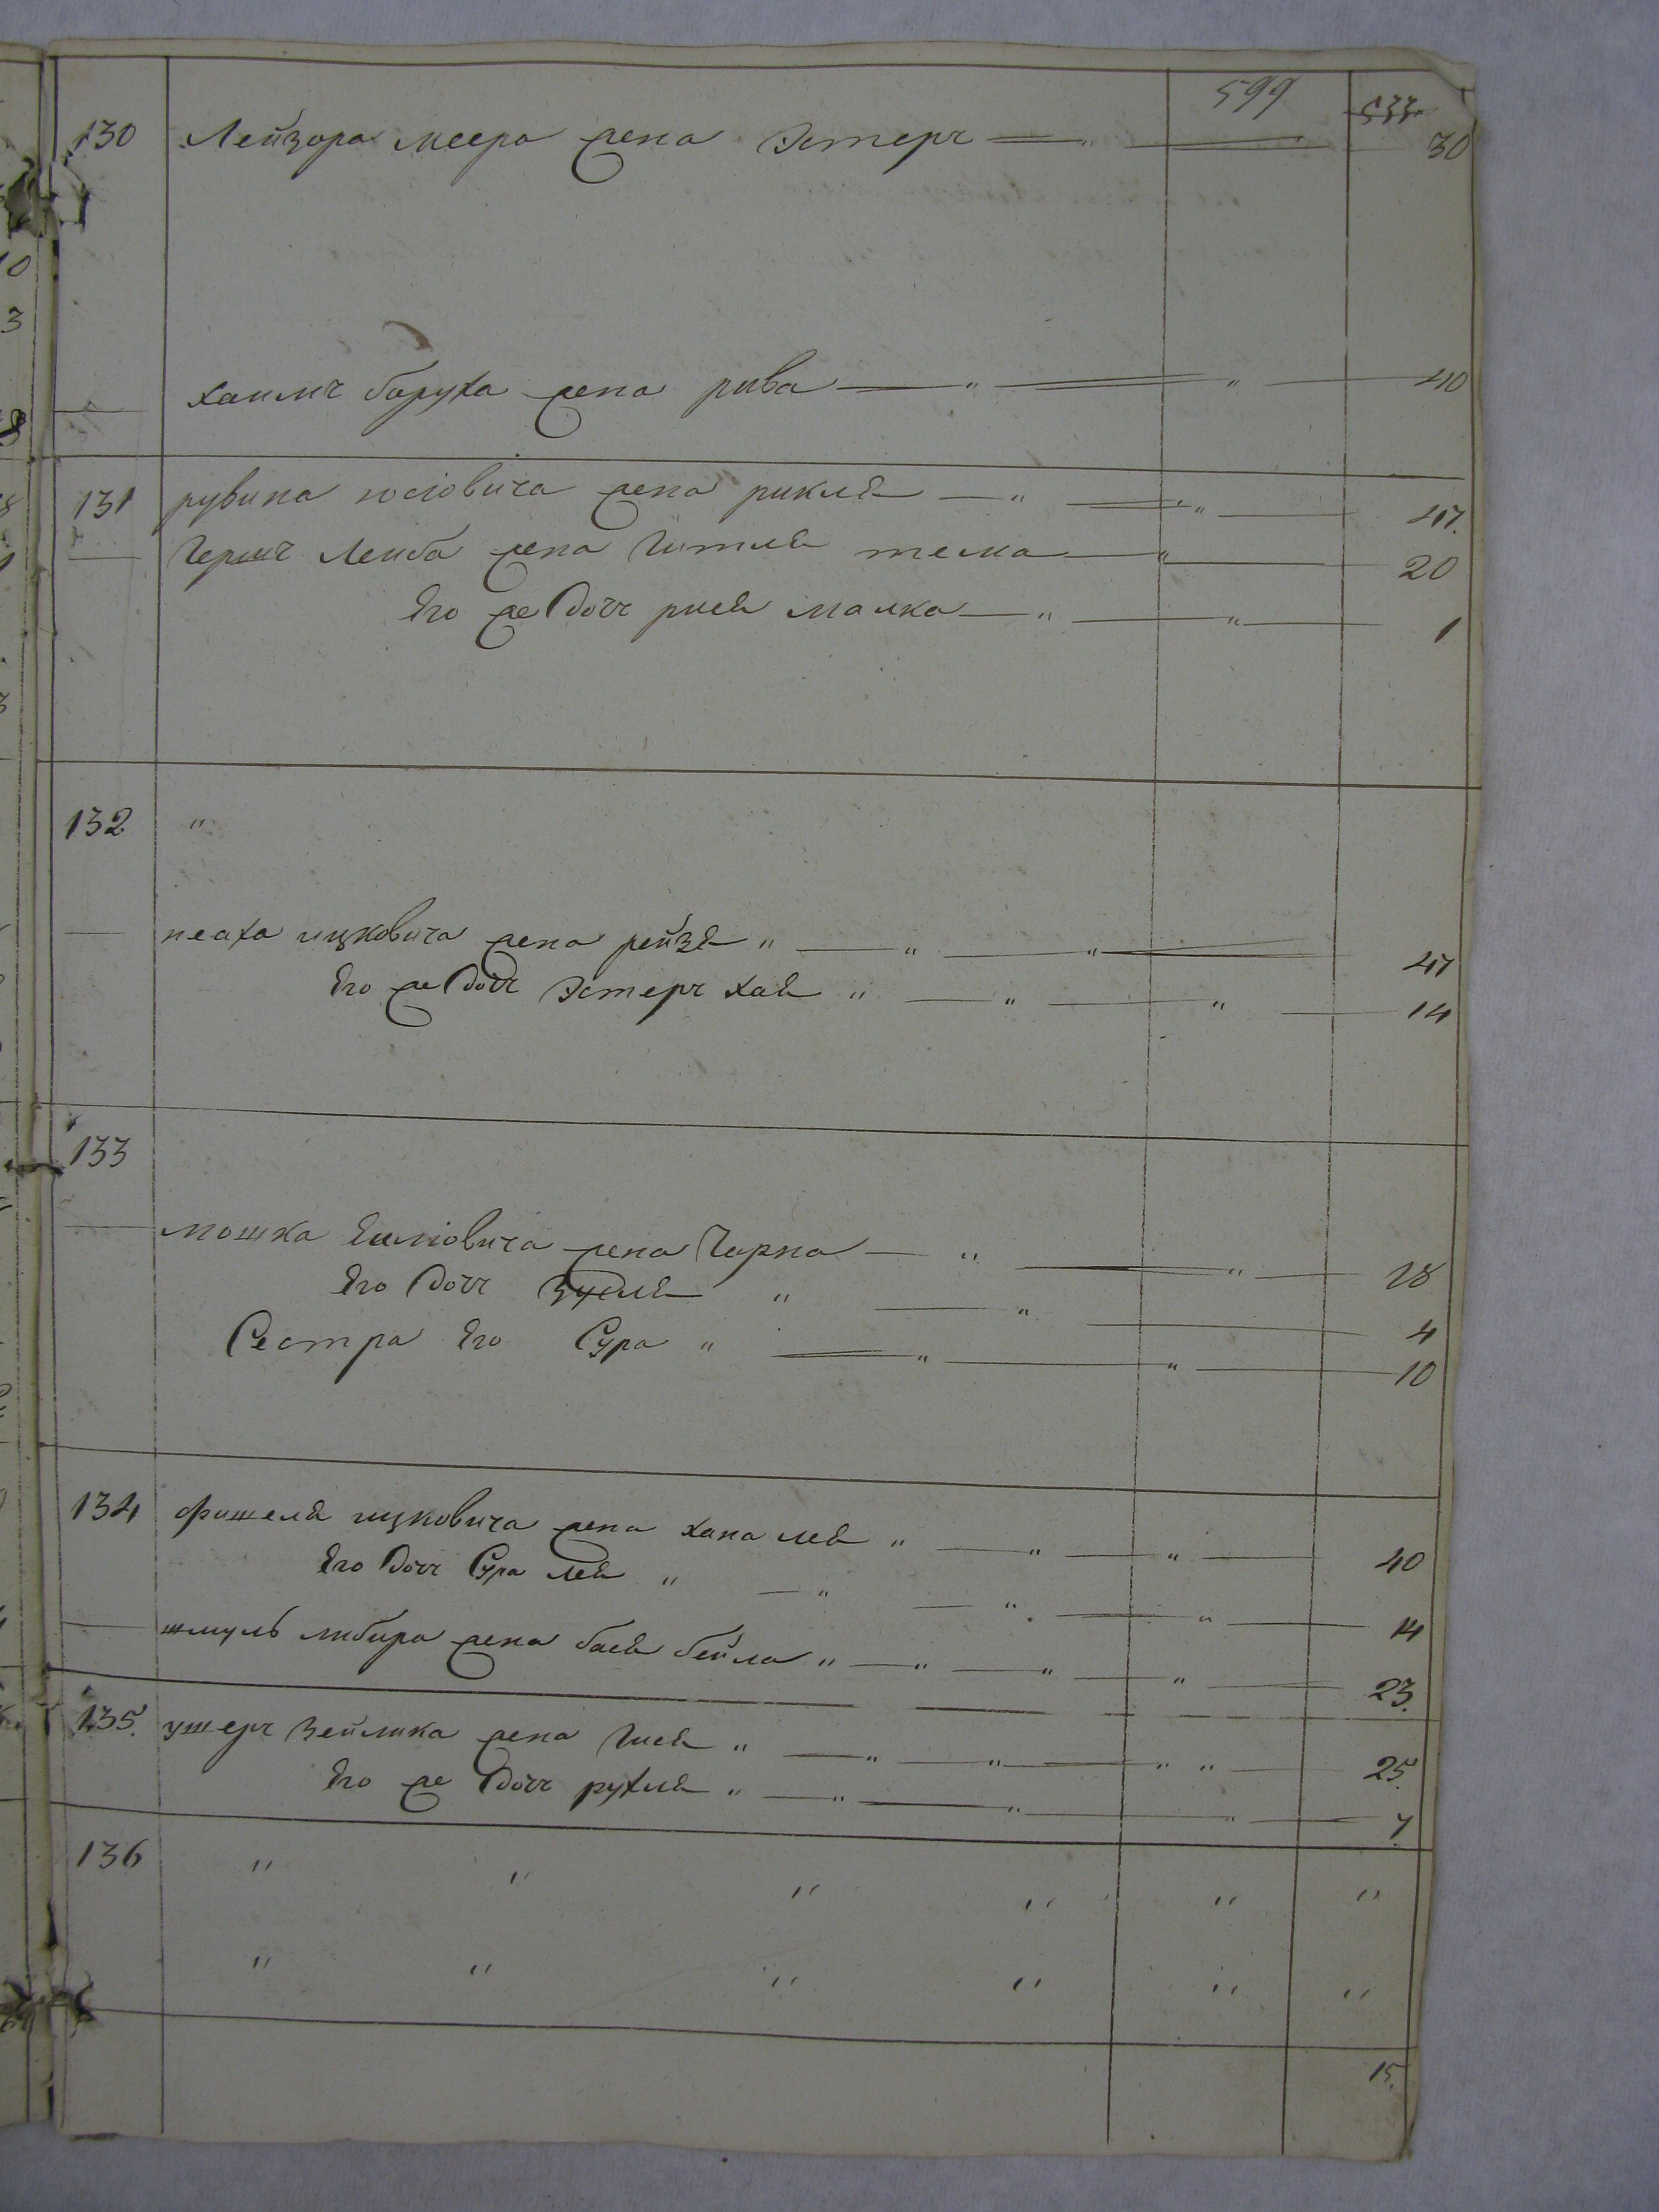 599 533
130 Лейзора меера жена Эстерь — " — 30
хаимъ баруха жена рива — " — " — 40
131 рувина иосіовича жена рикля — " — " — 47.
Гершъ Лейба жена Гитля тема — " — 20
Его же дочь рися малка — " — " — 1
132 "
песаха ицковича жена рейзя " — " — " — 47
Его же дочь Эстерь хая " — " — " — 14
133
мошка жена Чарна — " — " — 28
Его дочь " — " — 4
Сестра Его Сура " — " — " — 10
134 фишеля ицковича жена хана лея " — " — " — 40
Его дочь Сура лея " — " — " — " — 14
шмуль либера жена бася бейла " — " — " — " — 23.
135. ушеръ Зейлика жена Гися " — " — " — " " — 25.
Его же дочь рухля " — " — " — " — 7
136 " " " " " "
" " " " " "
15.